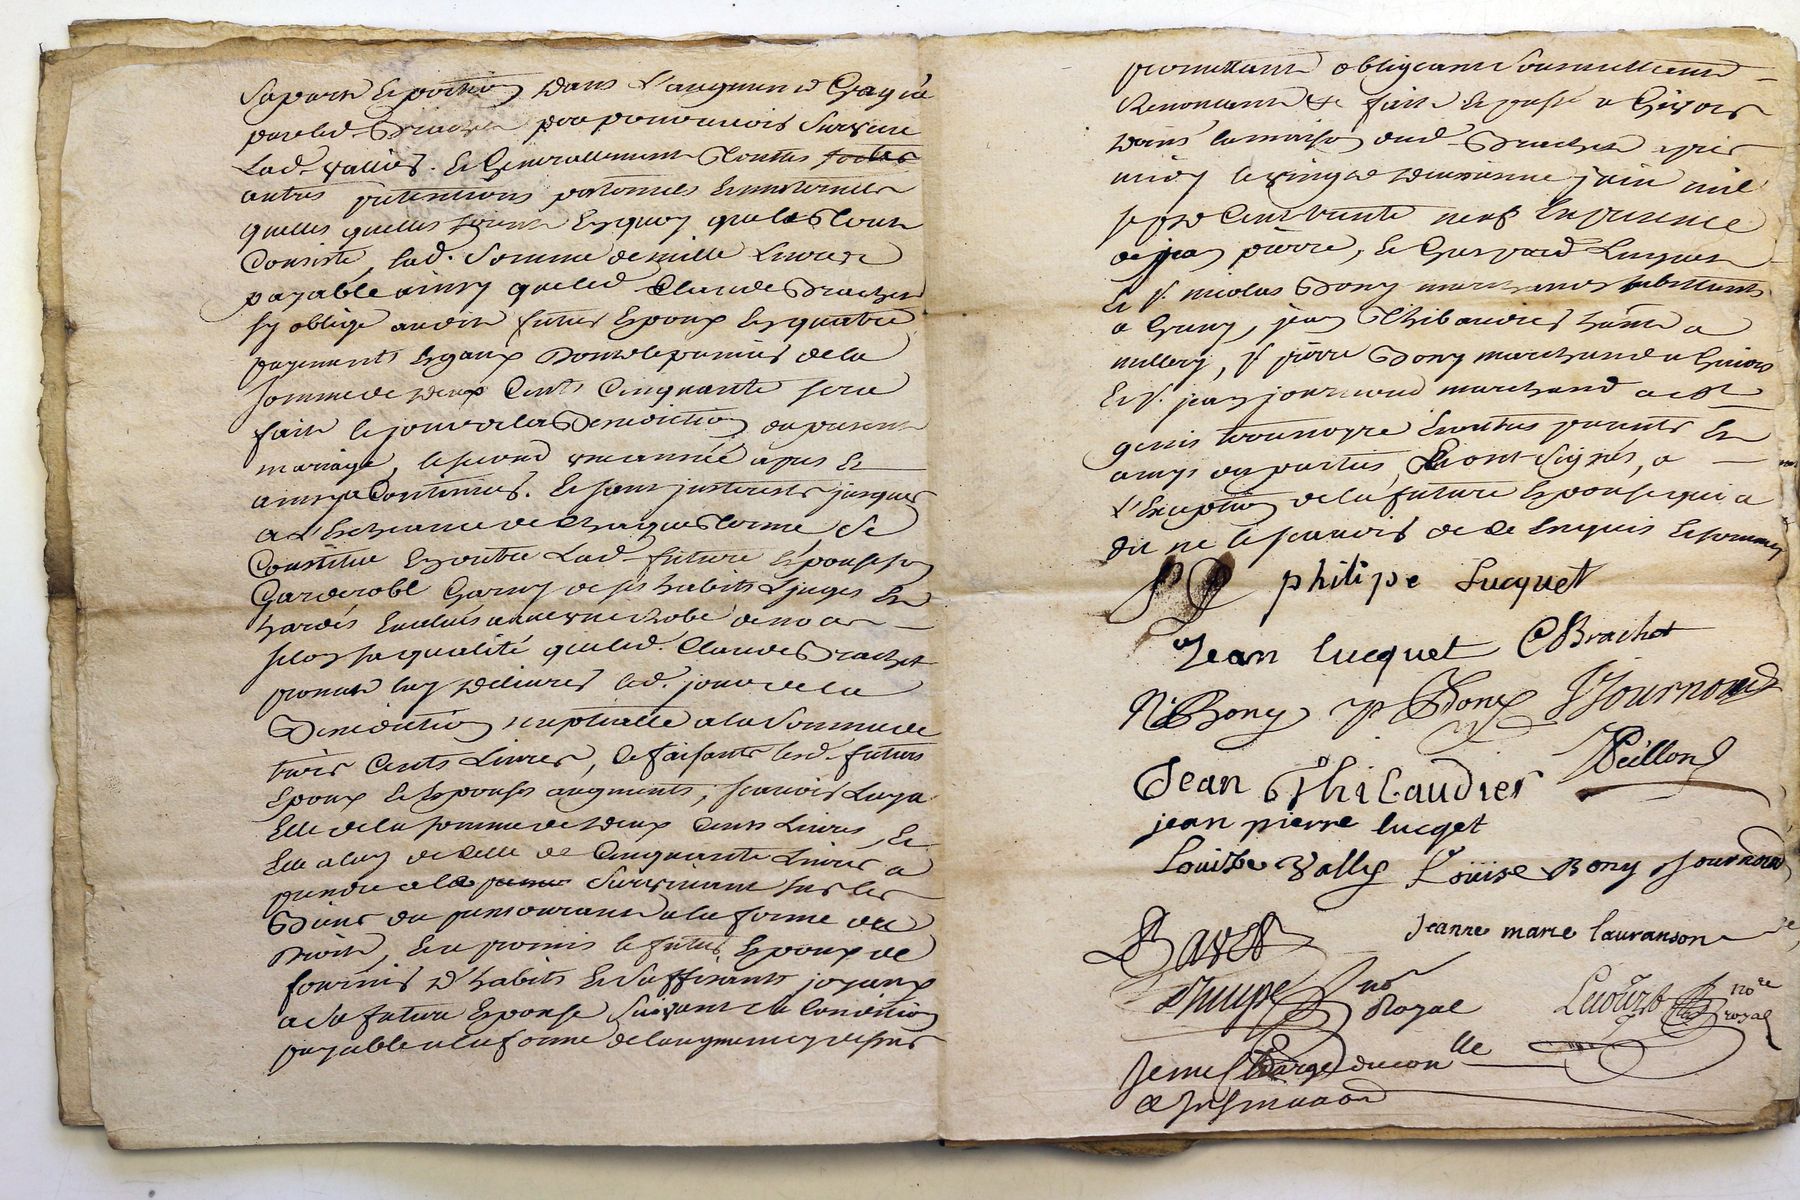 Sa part et portion dans l'augment Gagné
par led. Brachet par son survie
Lad. Vallies. et Generallement touttes
autres pretentions paternelles et maternelles
quelles quelles soient et en quoy que le tout
Consiste, lad. Somme de mille Livres
payable ainsy que led. Claude Brachet
sy oblige audit futur Epoux en quatre
payements Egaux dont le premier de la
somme de deux Cents Cinquante sera
faite le jour de la Benediction du present
mariage, le second une année apres et
ainsy a Continuer. et sans jnterests jusques
a l'Echeance de Chaque terme, se
Constitue En outre Lad. future Epouse son
Garderobe Garny de ses habits Linges et
hardes Enclus une robe de noces
selon sa qualité que led. Claude Brachet
promet luy delivrer led. jour de la
Benediction nuptialle a la Somme de
trois Cents Livres, se faisants lesd. futurs
Epoux et Epouse augments, scavoir Luy a
Elle de la somme de deux Cents Livres, et
Elle a luy de Celle de Cinquante Livres a
prendre le Survivant sur les
Biens du premourant a la forme du
Droit, et a promis le futur Epoux de
fournir d'habits et suffisants joyaux
a Sa future Epouse Suivant sa Condition
payable a la forme de l'augment
promettant obligeant Soumettant
Renonçant &c fait et passé a Givors
dans la maison dud. Brachet apres
midy le vingt deuxieme juin mil
sept Cent trente neuf En presence
de jean pierre, et Gaspard Lucquet
et s.r nicolas Bony marchands habittants
a Grigny, jean Thibaudier a
millery, s.r pierre Bony marchand a Givors
Et s.r jean journoud marchand a St
genis terrenoyre Enontres parents et
amys des parties, Qui ont Signés, a
l'Exception de la future Epouse qui a
dit ne le scavoir de ce Enquis et sommé
philipe Lucquet
Jean lucquet CBrachet
N Bony p Bony JJournoud
Jean Thibaudier Peillon
jean pierre lucqet
Louisse Vallie Louise Bony Journoud
Bavet
Jeanne marie lauranson
no.re Royal
no.re royal